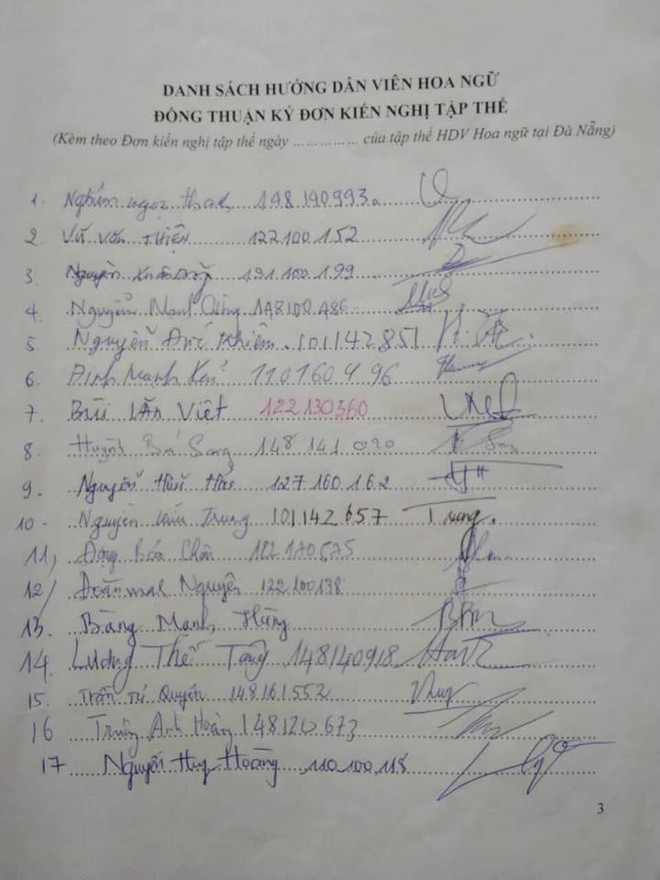 DANH SÁCH HƯỚNG DẪN VIÊN HOA NGỮ
ĐỒNG THUẬN KÝ ĐƠN KIẾN NGHỊ TẬP THỂ
(Kèm theo Đơn kiến nghị tập thể ngày ................ của tập thể HDV Hoa ngữ tại Đà Nẵng)
1. 198190993.
2. Vũ Văn Thiện 122100152
3. Nguyễn 191.100.199
4. Nguyễn Mạnh
5. Nguyễn Đức Khiêm. 101142851
6. Đinh Mạnh 110160496
7. Bùi Văn Việt 122130360
8. Huỳnh Bá Sang 148141020 Sang
9. Nguyễn Hữu 127160162
10- Nguyễn Trung 101142657 Trung.
11, Chân
12, Nguyên 122100178
13. Bàng Mạnh Hùng
14. Lương Thế Tăng 148140918
15. Trần Tú Quyên 148161552
16 Trương Anh Hoàng
17 Nguyễn Huy Hoàng 110.100.118
3